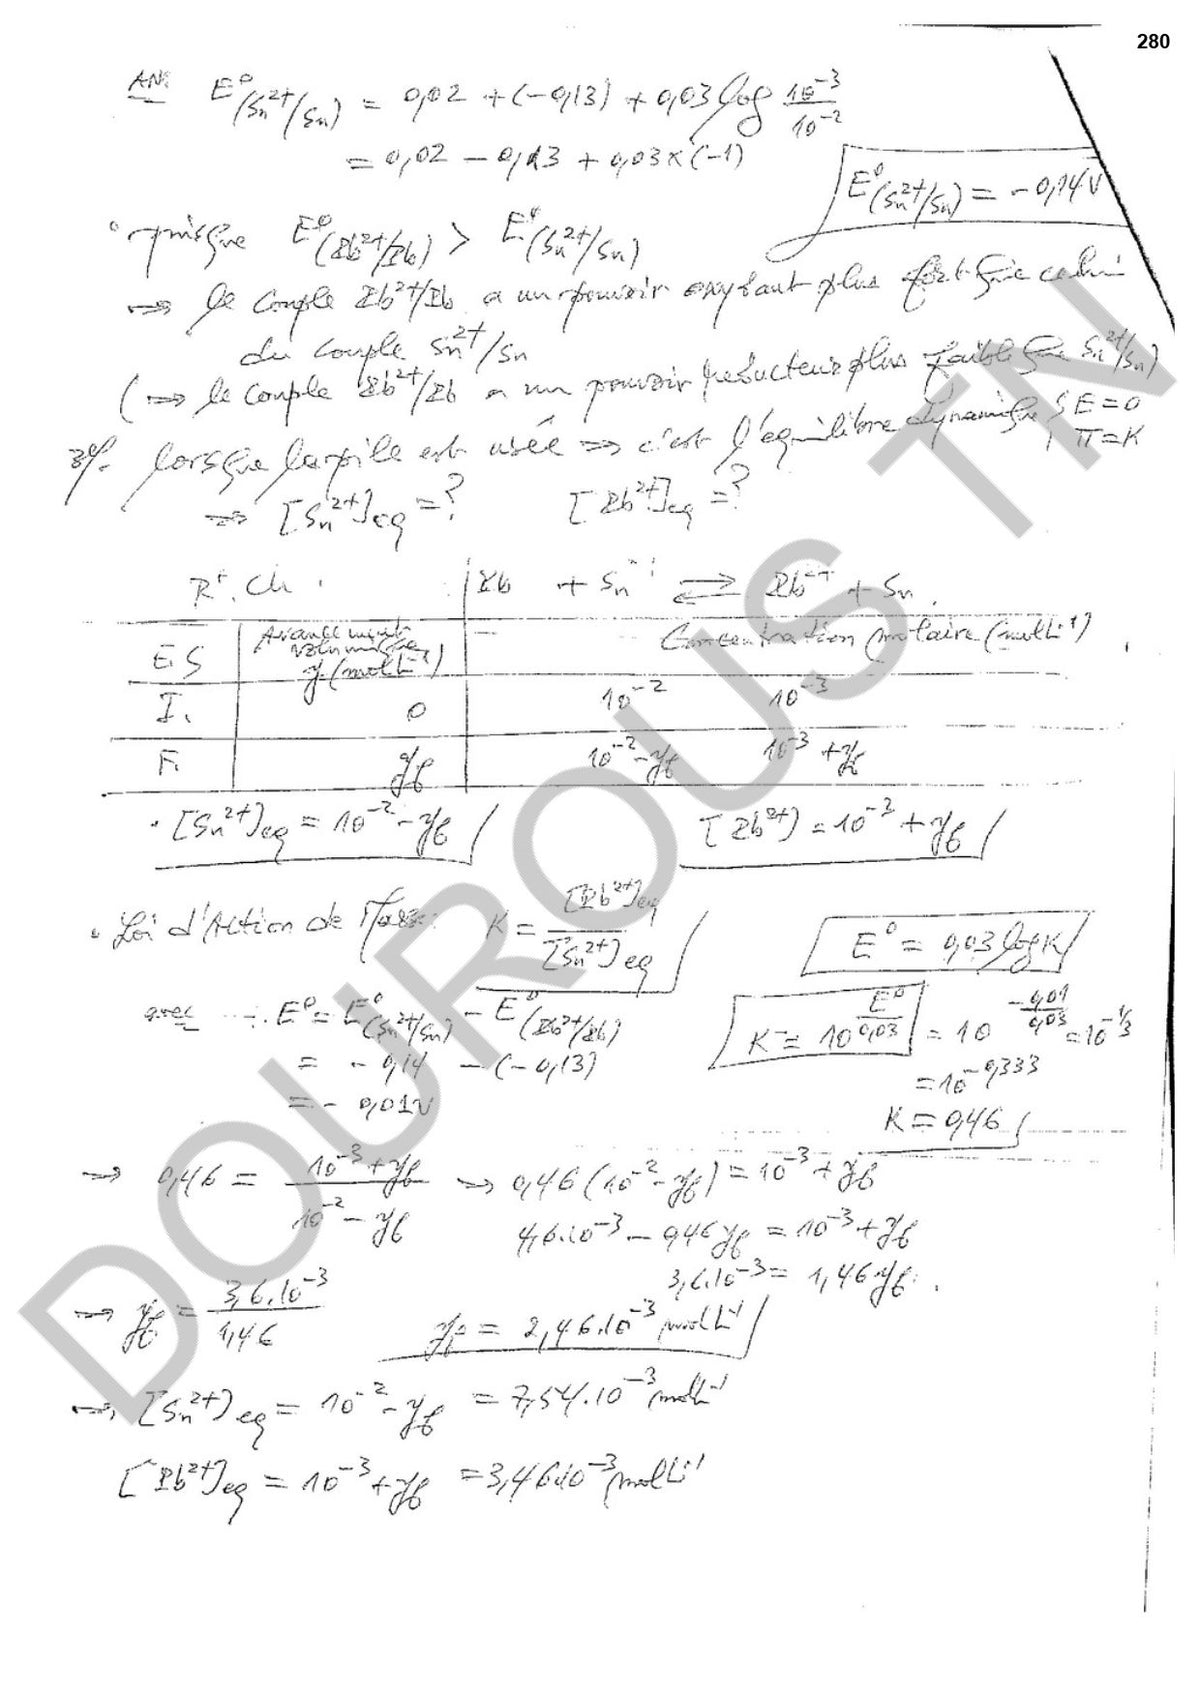 280
AN: E°(Sn²⁺/Sn) = 0,02 + (-0,13) + 0,03 log 10⁻³/10⁻²
= 0,02 - 0,13 + 0,03 x (-1)
E°(Sn²⁺/Sn) = - 0,14 V
• puisque E°(Pb²⁺/Pb) > E°(Sn²⁺/Sn)
⇒ le couple Pb²⁺/Pb a un pouvoir oxydant plus fort que celui
du couple Sn²⁺/Sn
(⇒ le couple Pb²⁺/Pb a un pouvoir reducteur plus faible que Sn²⁺/Sn)
3°/. lorsque la pile est usée ⇒ c'est l'equilibre dynamique { E = 0
π = K
⇒ [Sn²⁺]eq = ? [Pb²⁺]eq = ?
R⁺. Ch : Pb + Sn²⁺ ⇄ Pb²⁺ + Sn
E.S Avancement volumique y (mol L⁻¹) Concentration molaire (mol L⁻¹)
I. 0 10⁻² 10⁻³
F. yf 10⁻² - yf 10⁻³ + yf
• [Sn²⁺]eq = 10⁻² - yf [Pb²⁺] = 10⁻³ + yf
• Loi d'Action de Masse: K = [Pb²⁺]eq/[Sn²⁺]eq E° = 0,03 log K
avec E° = E°(Sn²⁺/Sn) - E°(Pb²⁺/Pb) K = 10^(E°/0,03) = 10^(-0,01/0,03) = 10^(-1/3)
= - 0,14 - (- 0,13) = 10^(-0,333)
= - 0,01 V K = 0,46
⇒ 0,46 = (10⁻³ + yf)/(10⁻² - yf) ⇒ 0,46 (10⁻² - yf) = 10⁻³ + yf
4,6.10⁻³ - 0,46 yf = 10⁻³ + yf
3,6.10⁻³ = 1,46 yf.
⇒ yf = 3,6.10⁻³/1,46 yf = 2,46.10⁻³ mol L⁻¹
⇒ [Sn²⁺]eq = 10⁻² - yf = 7,54.10⁻³ mol L⁻¹
[Pb²⁺]eq = 10⁻³ + yf = 3,46.10⁻³ mol L⁻¹
DOUROUS TN